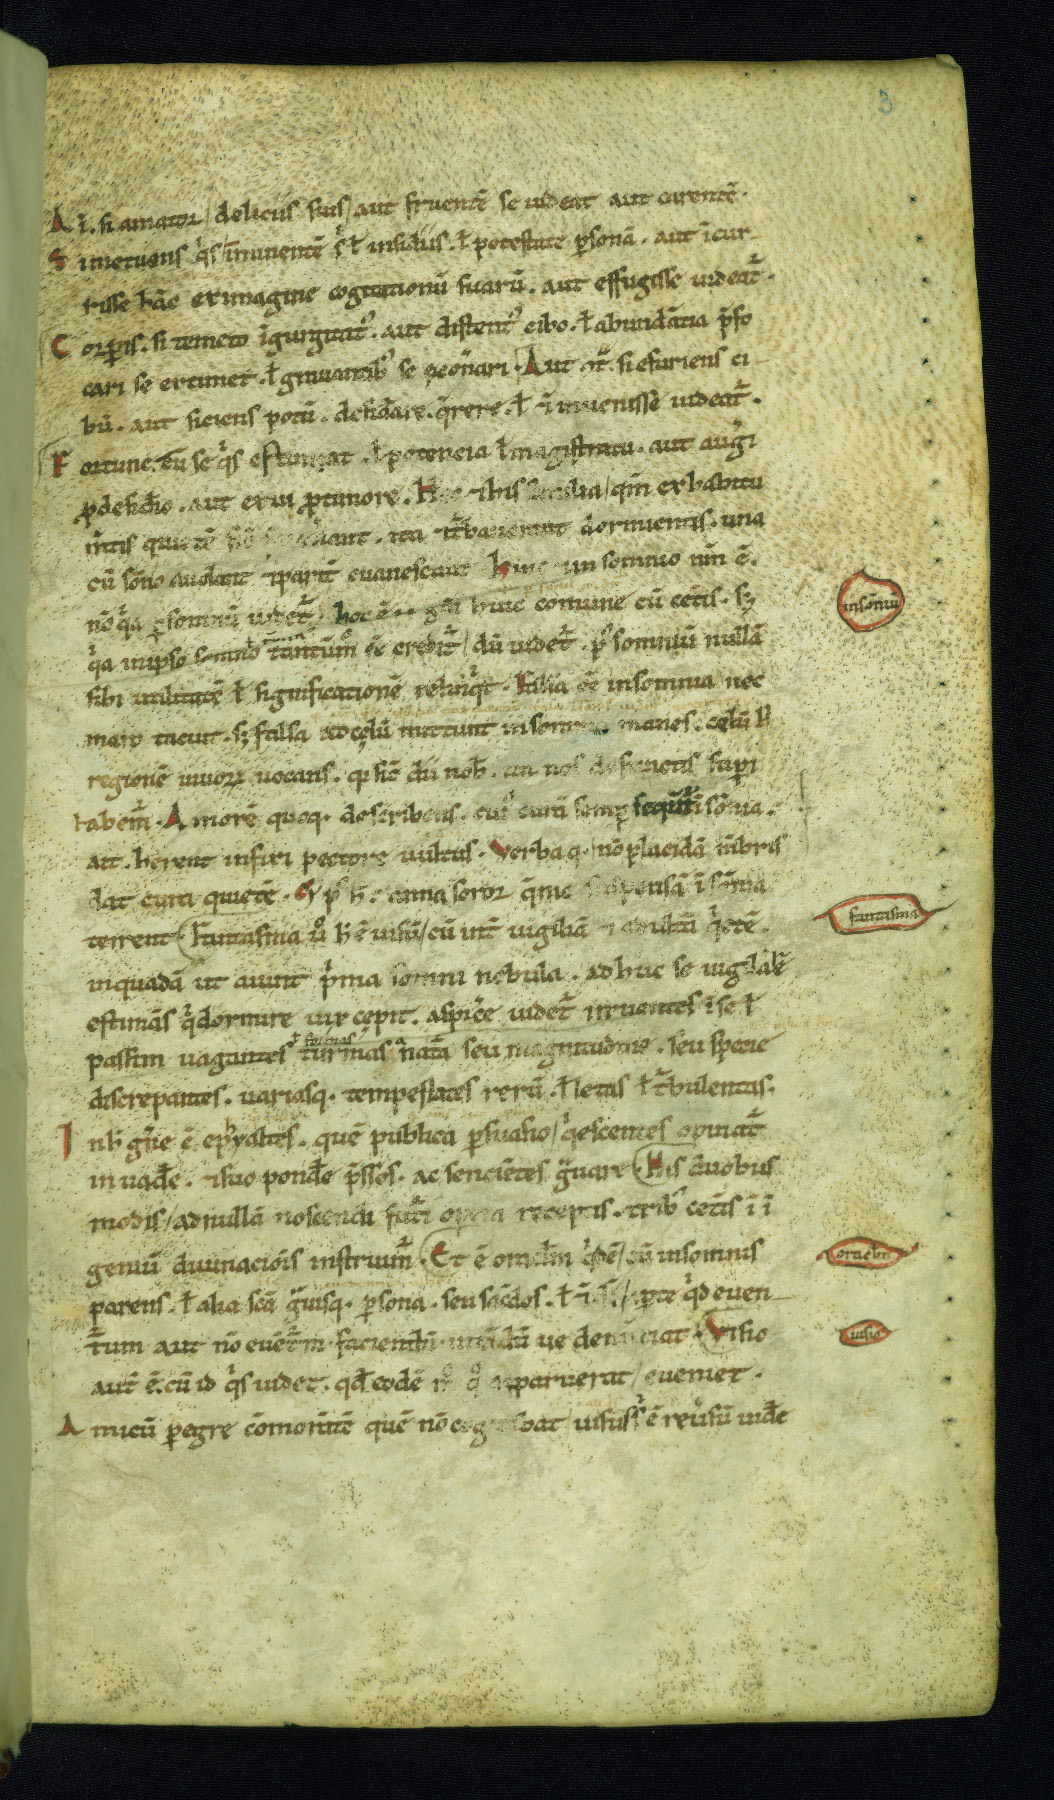 3
A ī. si amator / deliciis suis / aut fruentē se uideat aut carentē.
S i metuens q's īminentē s' ł insidiis. ł potestate p̱sonā. aut īcur-
risse hāc ex imagine cogitationū suarū. aut effugisse uideat̄.
C orp̱is. si temeto īgurgitat'. aut distent' cibo. ł abundātia p̄fo
cari se extimet. ł grauantib' se exon̄ari. Aut 9t̄. si esuriens ci-
bū. aut siciens potū. desid̄are. q̄rere. ł ī inuenisse uideat̄.
F ortune. cū se q's estimat. ł potencia ł magistratu. aut auḡi
p̱ desid̄io. aut exui p̱ timore. Hec his similia / qm̄ ex habitu
m̄tis quietē ita t̄bauerant dormientis. una
cū sōno auolant ⁊ parit̄ euanescunt Hinc ⁊ insomnio nm̄ ē.
nō q'a p̱ somniū uidet̄. hoc ē gn̄i huic comune cū cet̄is. sꝫ
q'a in ipso somno tantūm° ēe credit̄ / dū uidet̄. p' somniū nullā
sibi utilitatē ł significationē relinq't. Falsa ēe insomnia nec
maro tacuit. sꝫ falsa ad cęlū mittunt insomnia manes. celū h̄
regionē uiuoꝝ uocans. q' sic̄ dii nob̄. ita nos defunctis sup̱i
habem̄. Amorē quoq. describens. cui' curā semp̱ sequūt̄ īsōnia.
ait. herent infixi pectore uultus. Verbaq. nō placidā m̄bris
dat cura quietē. Et p' h̄. anna soror q̄ me suspensā īsōnia
terrent. Fantasma ū° h̄ ē uisū / cū int̄ uigiliā ⁊ adultā q'etē.
in quadā ut aiunt p'ma somni nebula. adhuc se uigilare
estimās q' dormire uix cepit. aspic̄e uidet̄ irruentes ī se ł
passim uagantes ł formas turmas a nat̄a seu magnitudine. seu specie
discrepantes. uariasq. tempestates rerū. ł letas ł t̄bulentas.
I n h̄ gn̄e ē ephyaltes. quē publica p̱suasio / q'escentes opinat̄
inuad̄e. ⁊ suo pond̄e p̄ssos. ac sencīetes g̃uare. His duobus
modis / ad nullā noscendi fut̄i opem receptis. trib' cet̄is ī ī
geniū diuinaciōis instruim̄. Et ē oraclm̄ q'dē / cū in somnis
parens. ł alia scā g̃uisq. p̱sona. seu sac̄dos. ł ap̱te q'd euen-
t̄um aut nō euēt̄m. faciendū. uitādū ue denūciat. Visio
aut̄ ē. cū id q's uidet. qd̄ eodē m° q° apparuerat / eueniet.
A micū p̱egre cōmorātē quē nō cogitabat uisus s' ē reūsū uid̄e
insōniū
fantasma
oraclm
uisio